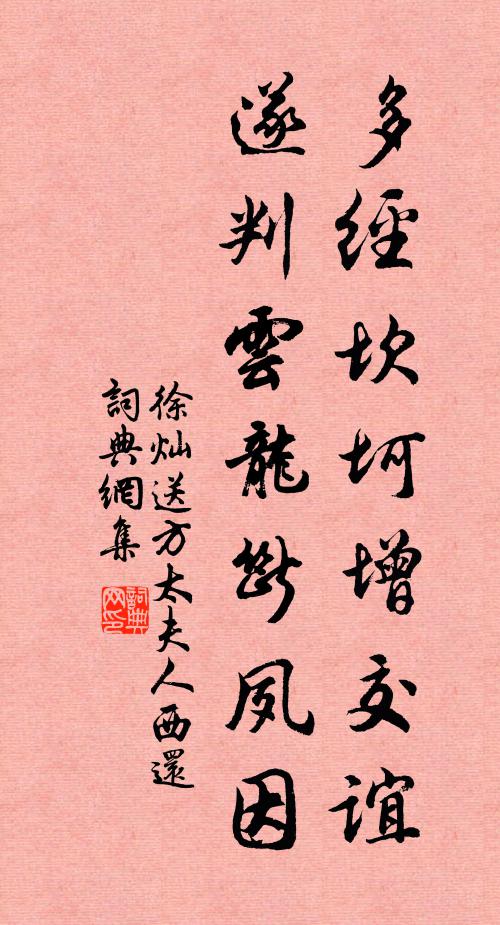 多經坎坷增交誼
遂判雲龍斷夙因
徐灿送方太夫人西還
詞典網集
詞典
网印